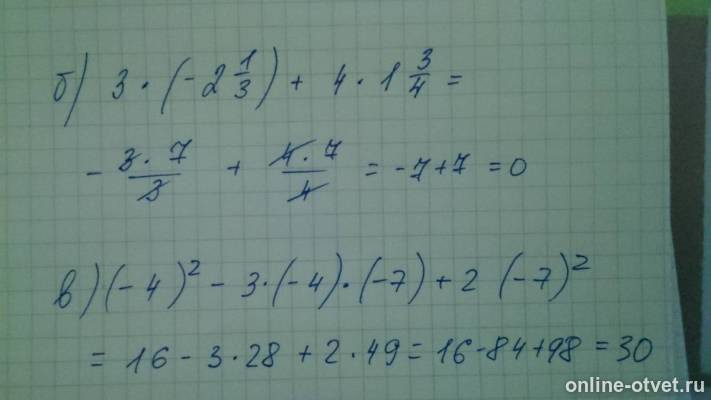 б) 3 · (-2 1/3) + 4 · 1 3/4 =
- 3 · 7/3 + 4 · 7/4 = -7+7 = 0
в) (-4)² - 3·(-4)·(-7) + 2 (-7)²
= 16 - 3·28 + 2·49 = 16-84+98 = 30
online-otvet.ru